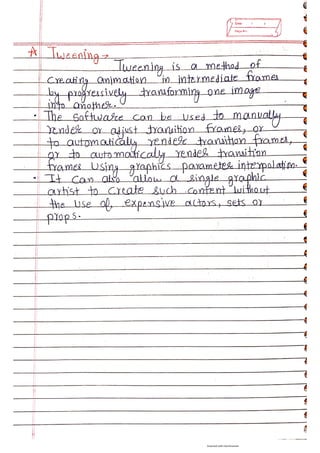 Date
Page No.
* Tweening →
Tweening is a method of
creating animation in intermediate frames
by progressively tranforming one image
into another.
• The software can be used to manually
render or ajust tranition frames, or
to automaticaly render tranition frames,
or to automatically render tranition
frames using graphics parameter interpolation.
• It can also allow a single graphic
artist to create such content without
the use of, expensive actors, sets or
props.